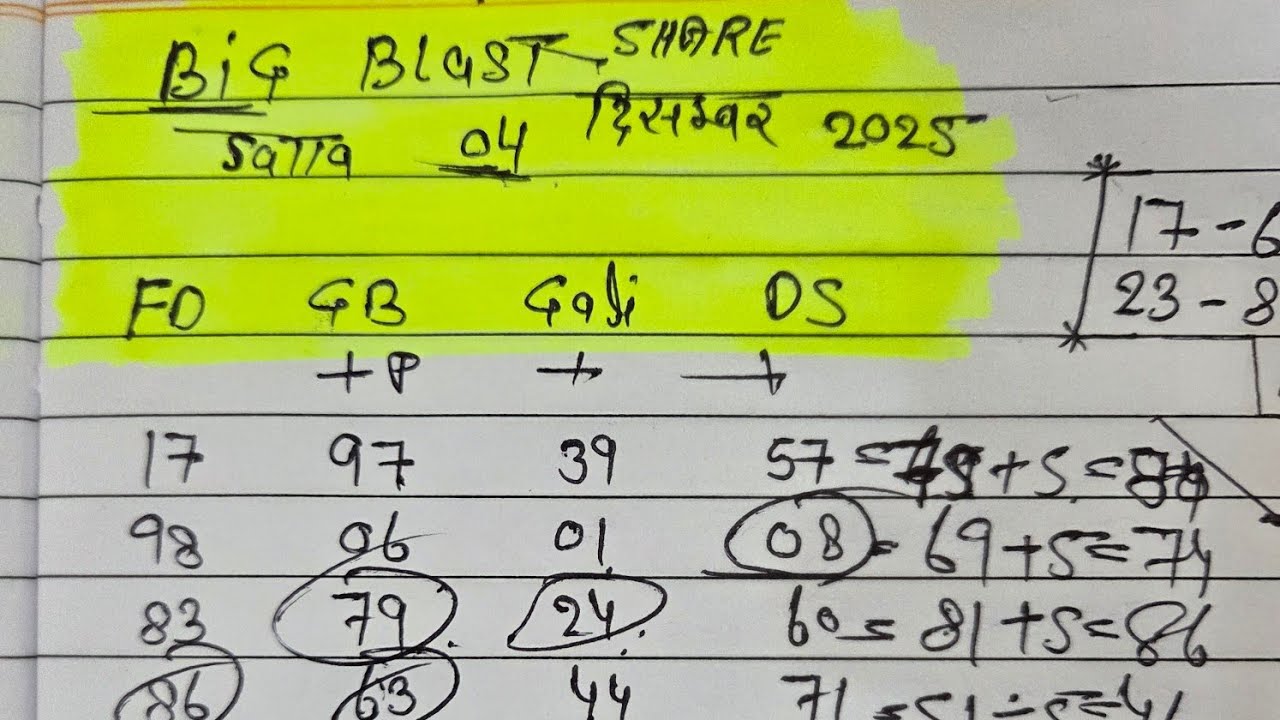 BiG BlaST SHARE
Satta 04 दिसम्बर 2025
17 - 6
23 - 8
FD GB Gali DS
+P + +
17 97 39 57 = 79 + 5 = 84
98 06 01 08 = 69 + 5 = 74
83 79 24 60 = 81 + 5 = 86
86 63 44 71 = 51 ÷ 5 = 41